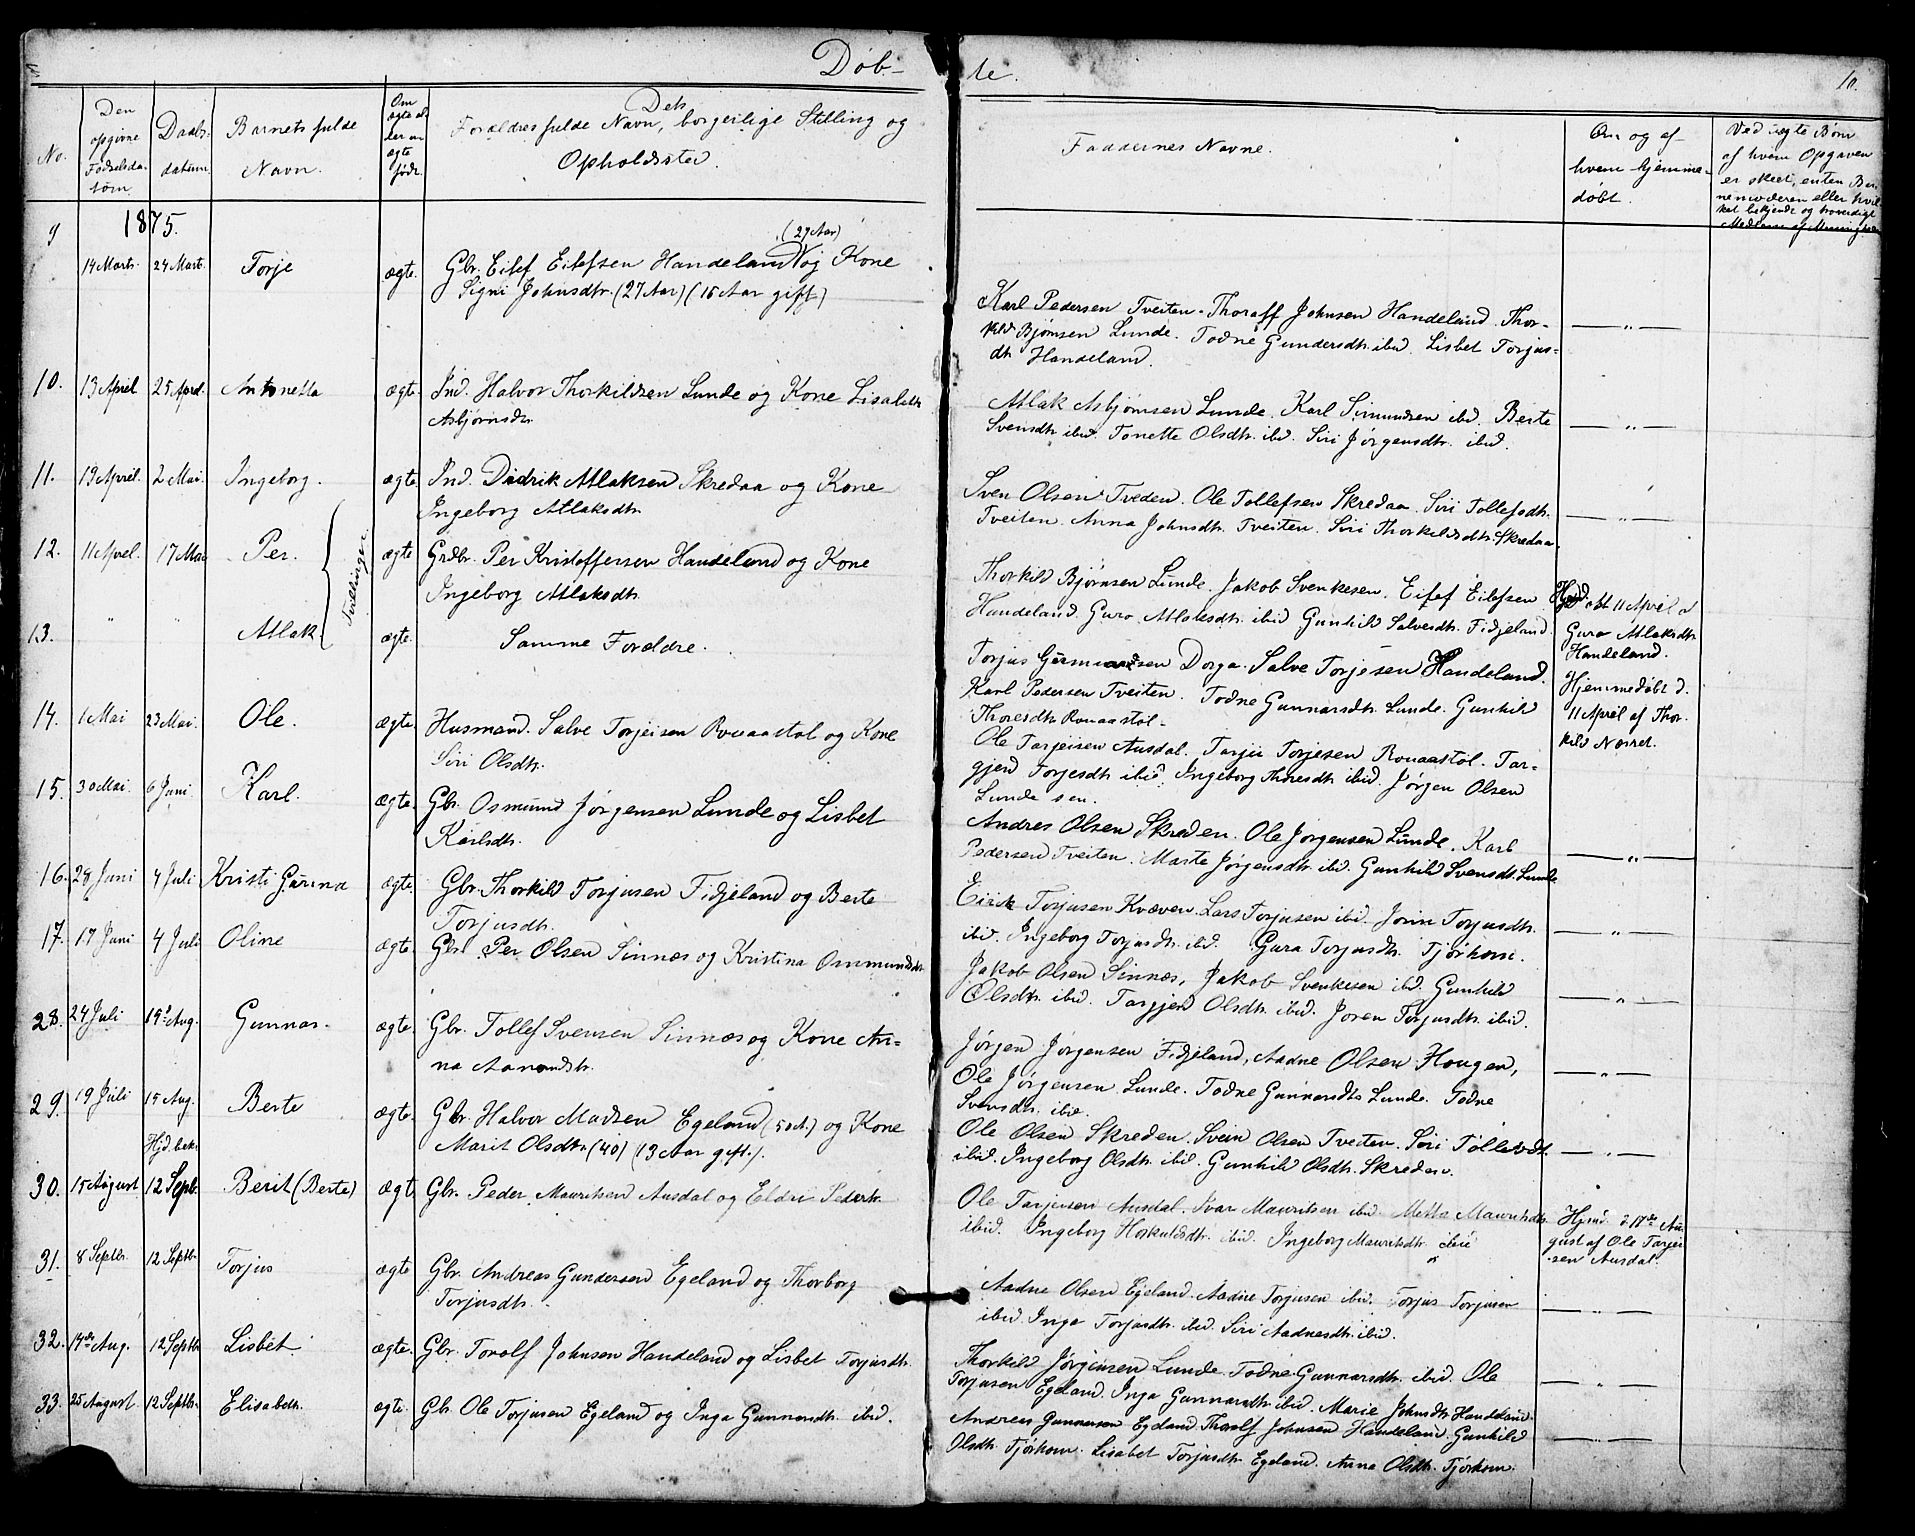 Døb-
te.
10.
No.
Den opgivne Fødselsda-tum.
Daabs-datum.
Barnets fulde Navn.
Om ægte el-ler u-ægte født.
Dets
Forældres fulde Navn, borgerlige Stilling og
Opholdssted.
Faddernes Navne.
Om og af hvem hjemme-døbt.
Ved uægte Børn
af hvem Opgaven
er skeet, enten Bar-
nemoderen eller hvil-
ket bekjendt og troværdigt
Medlem af Menigheden
1875.
9 14 Marts. 24 Marts. Torje ægte. Gbr. Eilef Eilefsen Handeland (29 Aar) og Kone
Signi Johnsdtr. (27 Aar) (15 Aar gift)
Karl Pedersen Tveiten. Thoralf Johnsen Handeland. Thor-
kild Bjørnsen Lunde. Todne Gundersdtr. ibid. Lisbet Torjus-
dtr Handeland.
10. 13 April 25 April. Antonetta ægte. Ind. Halvor Thorkildsen Lunde og Kone Lisabeth
Asbjørnsdtr.
Atlak Asbjørnsen Lunde. Karl Simundsen ibid. Berte
Svensdtr. ibid. Tonette Olsdtr. ibid. Siri Jørgensdtr. ibid.
11. 19 April. 2 Mai. Ingeborg. ægte Ind. Didrik Atlaksen Skredaa og Kone
Ingeborg Atlaksdtr.
Sven Olsen Tveden. Ole Tollefsen Skredaa. Siri Tollefsdtr.
Tveiten. Anna Johnsdtr. Tveiten. Siri Thorkildsdtr. Skredaa.
12. 11 April. 17 Mai Per. Tvillinger ægte Grdbr. Per Kristoffersen Handeland og Kone
Ingeborg Atlaksdtr.
Thorkild Bjørnsen Lunde. Jakob Svenkesen. Eilef Eilefsen
Handeland. Guro Atlaksdtr. ibid Gunhild Salvesdtr. Fidjeland.
Hjd. døbt 11 April af
Guro Atlaksdtr.
Handeland.
13. " " Atlak. ægte. Samme Forældre.
Torjus Germundsen Dorga. Salve Torjesen Handeland.
Karl Pedersen Tveiten. Todne Gunnarsdtr. Lunde. Gunhild
Thoresdtr. Rouaastøl.
Hjemmedøbt d.
11 April af Thor-
kild Nærret.
14. 1 Mai 23 Mai. Ole. ægte. Husmand. Salve Torjeisen Rouaastøl og Kone
Siri Olsdtr.
Ole Tarjeisen Ausdal. Tarjei Torjesen Rouaastøl. Tar-
gjerd Torjesdtr. ibid. Ingeborg Thoresdtr. ibid. Jørgen Olsen
Lunde sen.
15. 30 Mai. 6 Juni. Karl. ægte. Gbr. Osmund Jørgensen Lunde og Lisbet
Karlsdtr.
Andres Olsen Skreden. Ole Jørgensen Lunde. Karl
Pedersen Tveiten. Marte Jørgensdtr. ibid. Gunhild Svensdtr. Lunde
16. 28 Juni 4 Juli Kristi Gurina ægte. Gbr. Thorkild Torjusen Fidjeland og Berte
Torjusdtr.
Eirik Torjusen Kvæven. Lars Torjusen ibid. Jorin Torjusdtr.
ibid. Ingeborg Torjusdtr. ibid. Gura Torjusdtr. Tjørhom.
17. 17 Juni 4 Juli Oline ægte. Gbr. Per Olsen Sinnæs og Kristina Ommundsdtr
Jakob Olsen Sinnæs, Jakob Svenkesen ibid. Gunhild
Olsdtr. ibid. Targjerd Olsdtr. ibid. Joren Torjusdtr. ibid.
28. 24 Juli 15 Aug. Gunnar. ægte. Gbr. Tollef Svensen Sinnæs og Kone An-
na Aanondsdtr.
Jørgen Jørgensen Fidjeland, Aadne Olsen Hougen,
Ole Jørgensen Lunde. Todne Gunnarsdtr Lunde. Todne
Svensdtr. ibid.
29. 19 Juli 15 Aug. Berte ægte. Gbr. Halvor Madsen Egeland (50 A.) og Kone
Hjd. bek. Marit Olsdtr (40) (13 Aar gift.)
Ole Olsen Skreden. Svein Olsen Tveiten. Siri Tollevsdtr.
ibid. Ingeborg Olsdtr. ibid. Gunhild Olsdtr. Skreden.
30. 15 August 12 Septb. Berit (Berte) ægt. Gbr. Peder Mauritsen Ausdal og Eldri Pedersdtr.
Ole Tarjeisen Ausdal. Ivar Mauritsen ibid. Metta Mauritsdtr.
ibid. Ingeborg Horkuldsdtr. ibid. Ingeborg Mauritsdtr. ibid
Hjmd. d 17de Au-
gust af Ole Tarjei-
sen Ausdal.
31. 8 Septbr. 12 Septbr. Torjus ægte Gbr. Andreas Gundersen Egeland og Thorborg
Torjusdtr.
Aadne Olsen Egeland. Aadne Torjusen ibid. Torjus Torjusen
ibid. Inga Torjusdtr. ibid. Siri Aadnesdtr. ibid.
32. 14de Aug. 12 Septbr Lisbet ægte. Gbr. Torolf Johnsen Handeland og Lisbet Torjusdtr.
Thorkild Jørginsen Lunde. Todne Gunnarsdtr. ibid. Ole
Torjusen Egeland. Inga Gunnarsdtr. ibid. Marie Johnsdtr. Handeland.
33. 25 August. 12 Septbr. Elisabeth. ægte. Gbr. Ole Torjusen Egeland og Inga Gunnarsdtr. ibid.
Andreas Gunnarsen Egeland. Thorolf Johnsen Handeland. Gunhild
Olsdtr. Tjørhom. Lisabet Torjusdtr. Egeland. Anna Olsdtr. Tjørhom.